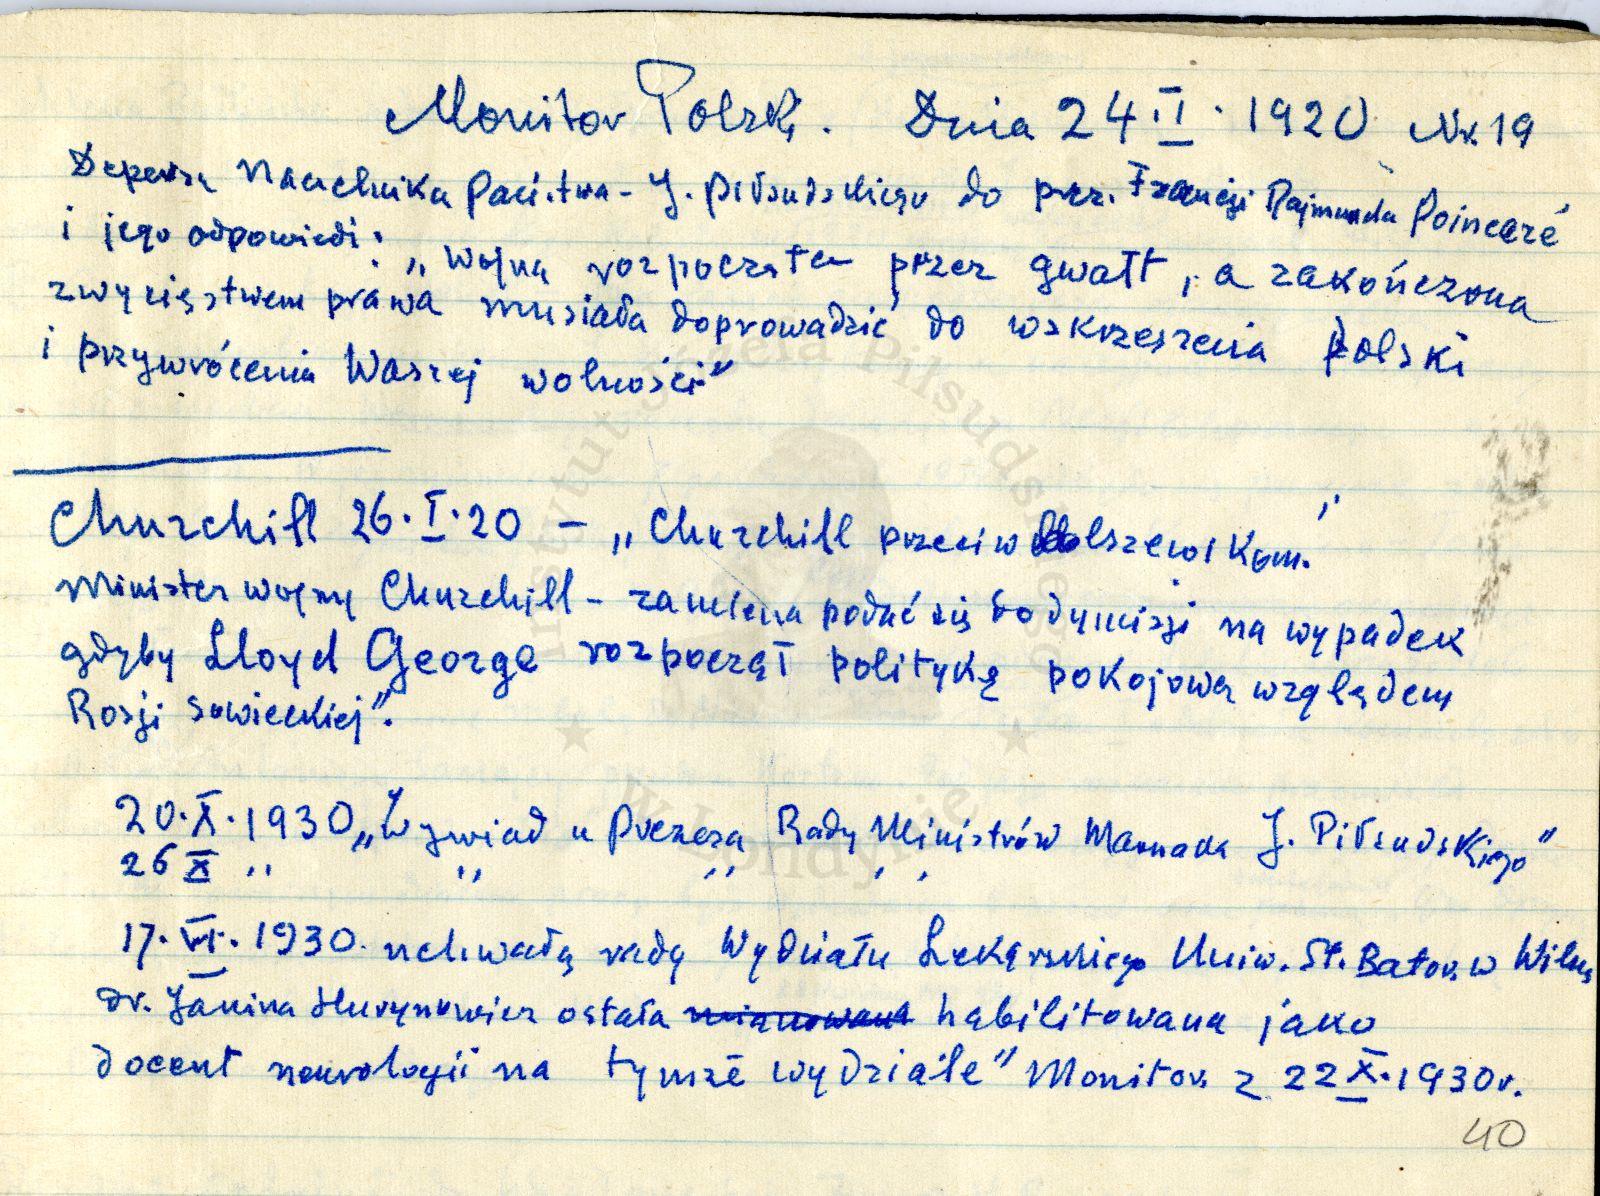 Monitor Polski. Dnia 24.II.1920 Nr. 19
Depesza Naczelnika Państwa - J. Piłsudskiego do prez. Francji Rajmunda Poincaré
i jego odpowiedź: „Wojna rozpoczęta przez gwałt, a zakończona
zwycięstwem prawa musiała doprowadzić do wskrzeszenia Polski
i przywrócenia Waszej wolności"
Churchill 26.I.20 - „Churchill przeciw bolszewikom."
Minister wojny Churchill - zamierza podać się do dymisji na wypadek
gdyby Lloyd George rozpoczął politykę pokojową względem
Rosji sowieckiej".
20.X.1930 „Wywiad u Prezesa Rady Ministrów Marszałka J. Piłsudskiego"
26 X " " " "
17.VI.1930. uchwałą rady Wydziału Lekarskiego Uniw. St. Bator. w Wilnie
dr. Janina Hurynowicz ostała mianowana habilitowana jako
docent neurologii na tymże wydziale" Monitor z 22 X.1930r.
40
Instytut Józefa Piłsudskiego
★ w Londynie ★